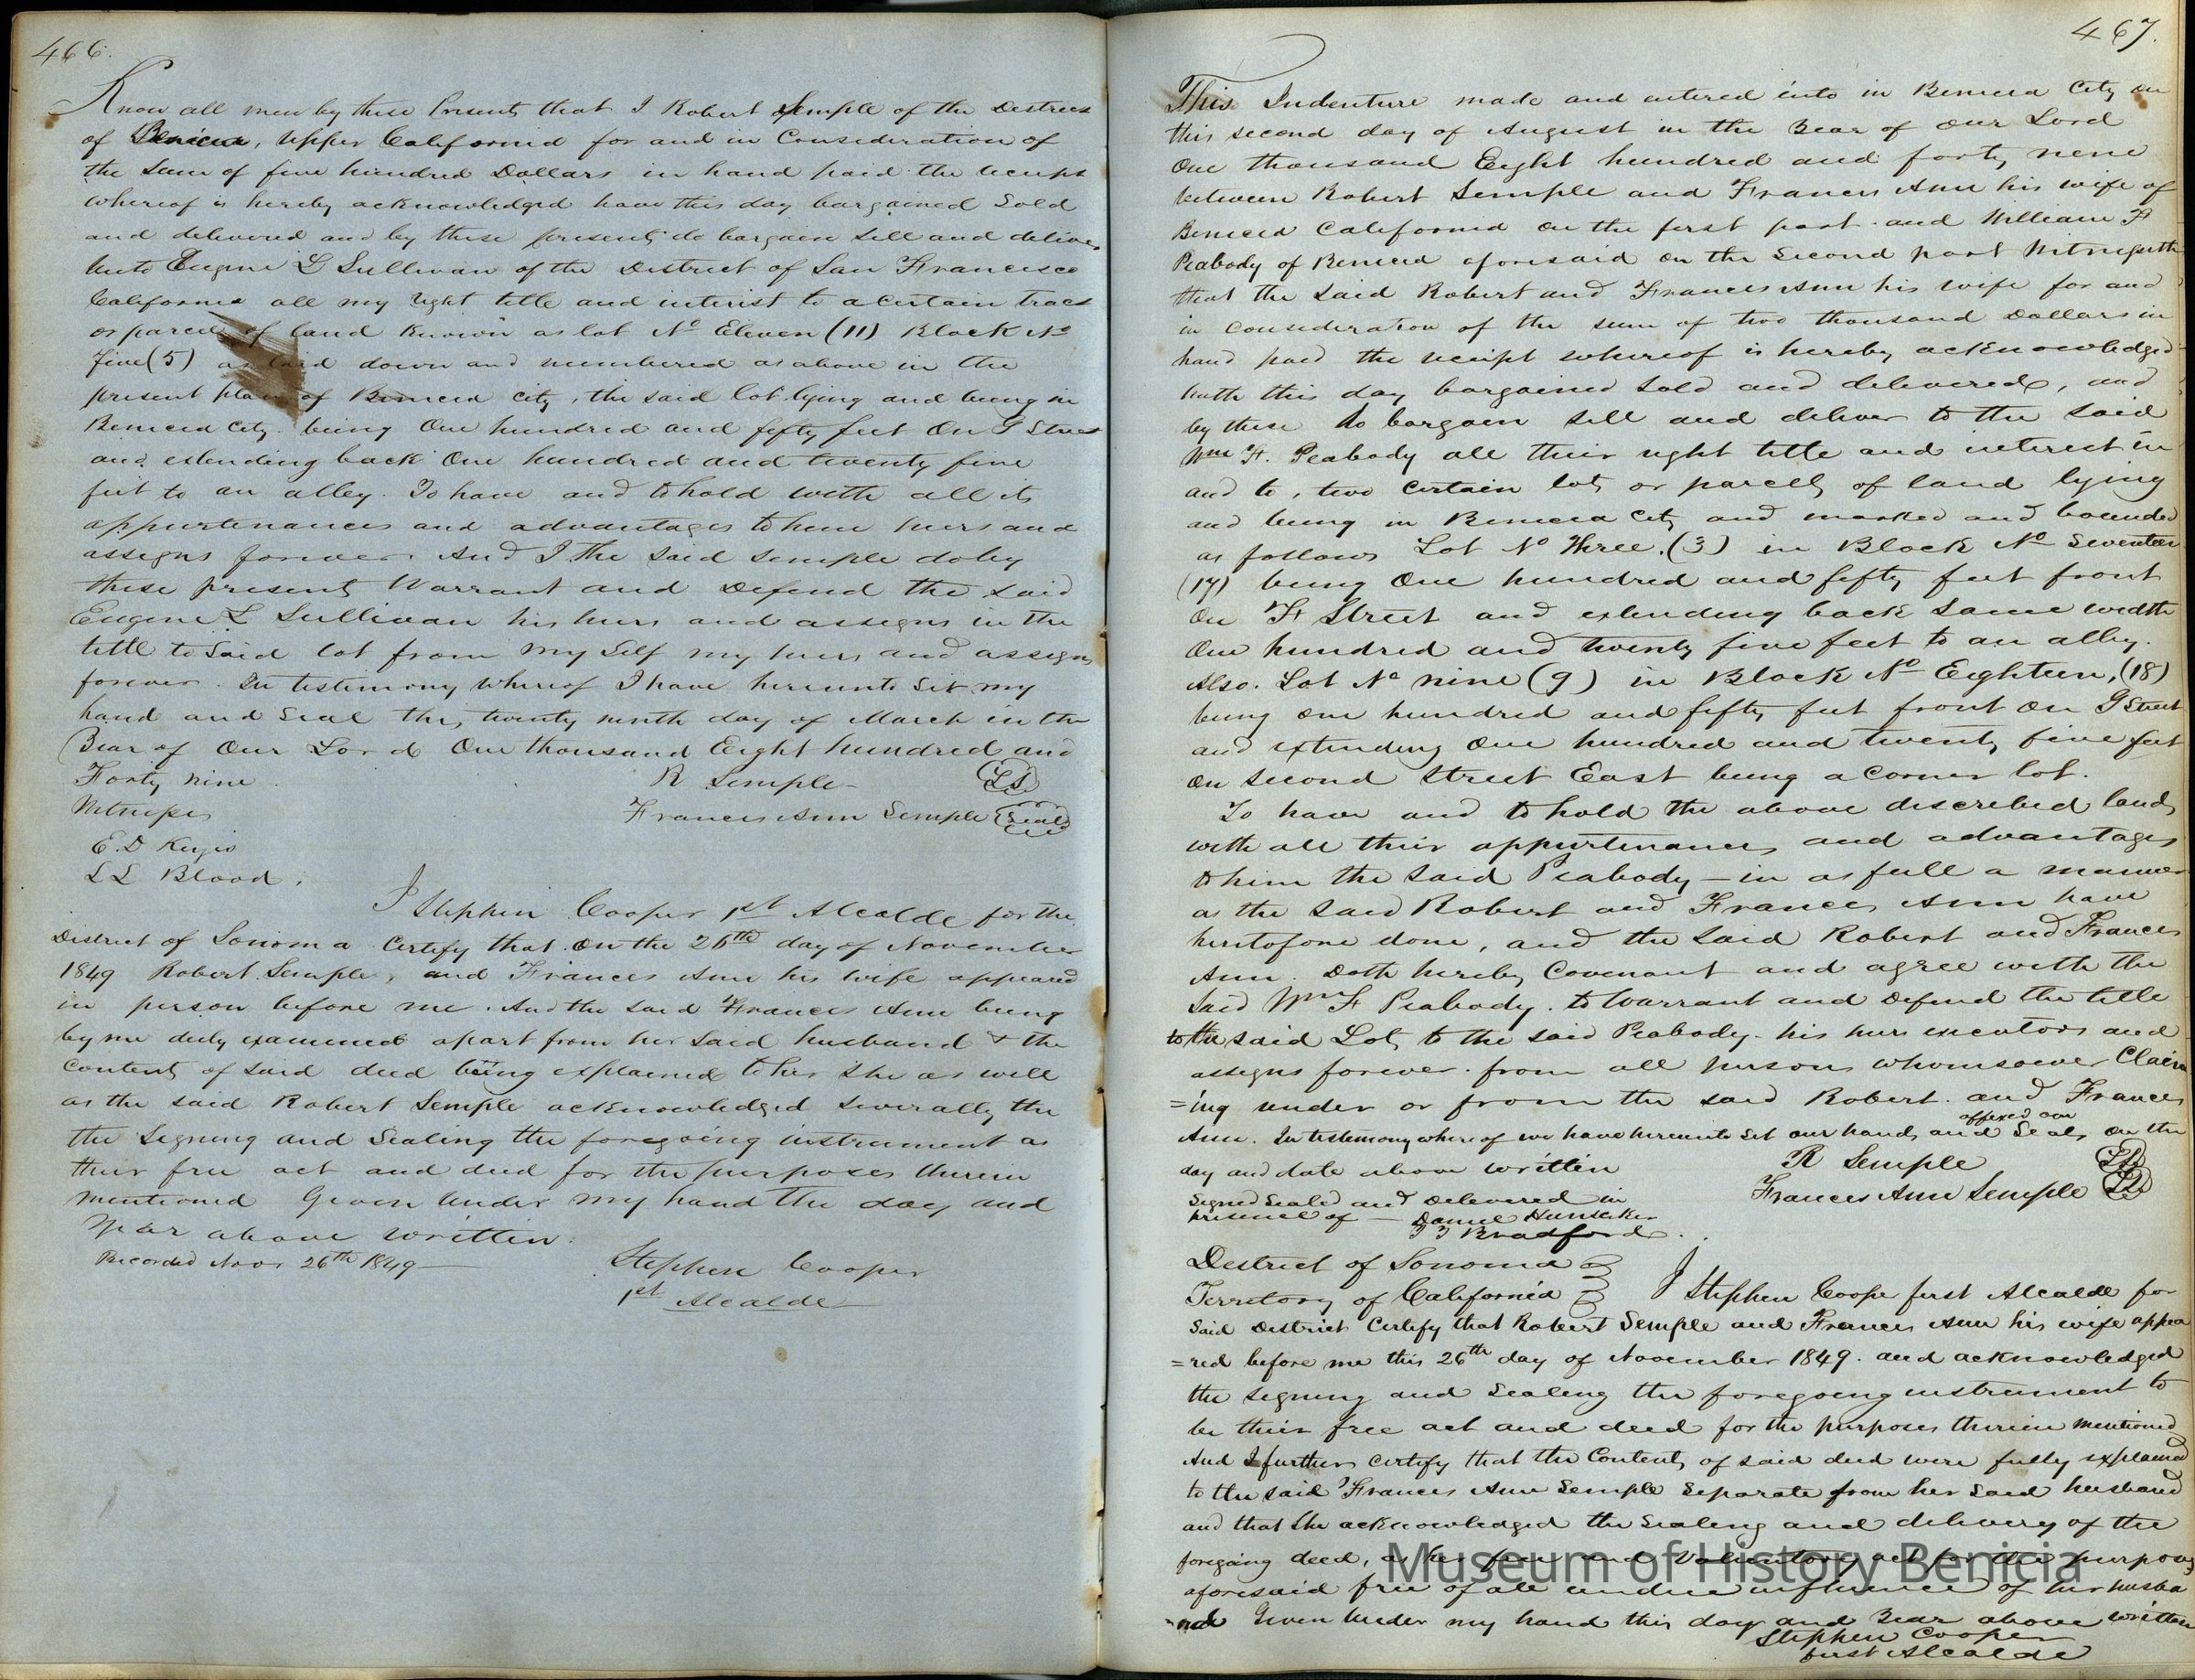 466.
Know all men by these Presents that I Robert Semple of the District
of Benicia, Upper California for and in Consideration of
the Sum of five hundred Dollars in hand paid the receipt
whereof is hereby acknowledged have this day bargained Sold
and delivered and by these presents do bargain sell and deliver
unto Eugene L Sullivan of the District of San Francisco
California all my right title and interist to a certain tract
or parcel of land known as lot No Eleven (11) Block No
five (5) as laid down and numbered as above in the
present plan of Benicia City, the said lot lying and being in
Benicia City being One hundred and fifty feet On G Street
and extending back One hundred and twenty five
feet to an alley. To have and to hold with all its
appurtenances and advantages to him heirs and
assigns forever. And I the said Semple do by
these presents Warrant and Defend the said
Eugene L Sullivan his heirs and assigns in the
title to Said lot from my Self my heirs and assigns
forever. In testimony whereof I have hereunto Set my
hand and Seal this twenty ninth day of March in the
Year of Our Lord One thousand Eight hundred and
Forty nine R Semple LS
Witness Frances Ann Semple Seal
E. D
L L Blood.
I Stephen Cooper 1st Alcalde for the
District of Sonoma Certify that on the 26th day of November
1849 Robert Semple, and Frances Ann his wife appeared
in person before me. And the said Frances Ann being
by me duly examined apart from her Said husband & the
Contents of said deed being explained to her She as well
as the said Robert Semple acknowledged Severally the
the Signing and Sealing the foregoing instrument as
their free act and deed for the purposes therein
mentioned Given Under my hand the day and
Year above written.
Recorded Novr 26th 1849 Stephen Cooper
1st Alcalde
467.
This Indenture made and entered into in Benicia City on
this second day of August in the Year of our Lord
One thousand Eight hundred and forty nine
between Robert Semple and Frances Ann his wife of
Benicia California on the first part and William F
Peabody of Benicia aforesaid on the Second part Witnesseth
that the said Robert and Frances Ann his wife for and
in consideration of the sum of two thousand Dollars in
hand paid the receipt whereof is hereby acknowledged
hath this day bargained Sold and delivered, and
by these do bargain Sell and deliver to the said
Wm F. Peabody all their right title and interest in
and to, two Certain lots or parcels of land lying
and being in Benicia City and marked and bounded
as follows Lot No Three. (3) in Block No Seventeen
(17) being One hundred and fifty feet front
On F Street and extending back Same width
One hundred and twenty five feet to an alley.
Also. Lot No nine (9) in Block No Eighteen, (18)
being one hundred and fifty feet front on G Street
and extending One hundred and twenty five feet
on Second Street East being a Corner lot.
To have and to hold the above discrebed lands
with all their appurtenances and advantages
to him the Said Peabody — in as full a manner
as the Said Robert and Frances Ann have
heretofore done, and the Said Robert and Frances
Ann. Doth hereby Covenant and agree with the
Said Wm F Peabody. to Warrant and Defend the title
to the said Lots to the said Peabody. his heirs executors and
assigns forever. from all persons whomsoever Claim
=ing under or from the said Robert. and Frances
Ann. In testimony whereof we have hereunto Set our hands and affixed our Seals on the
day and date above written R Semple LS
Signed Seald and Delivered in Frances Ann Semple LS
presence of — Daniel Hunsaker
Bradford.
District of Sonoma
Territory of California I Stephen Cooper first Alcalde for
Said District Certify that Robert Semple and Frances Ann his wife appea
=red before me this 26th day of November 1849. and acknowledged
the signing and Sealing the foregoing instrument to
be their free act and deed for the purposes therein mentioned
And I further Certify that the Contents of said deed were fully explained
to the said Frances Ann Semple Separate from her said husband
and that She acknowledged the Sealing and delivery of the
foregoing deed, as her free and Voluntary act for the purposes
aforesaid free of all undue influence of her husba
=nd Given Under my hand this day and Year above written
Stephen Cooper
first Alcalde
Museum of History Benicia